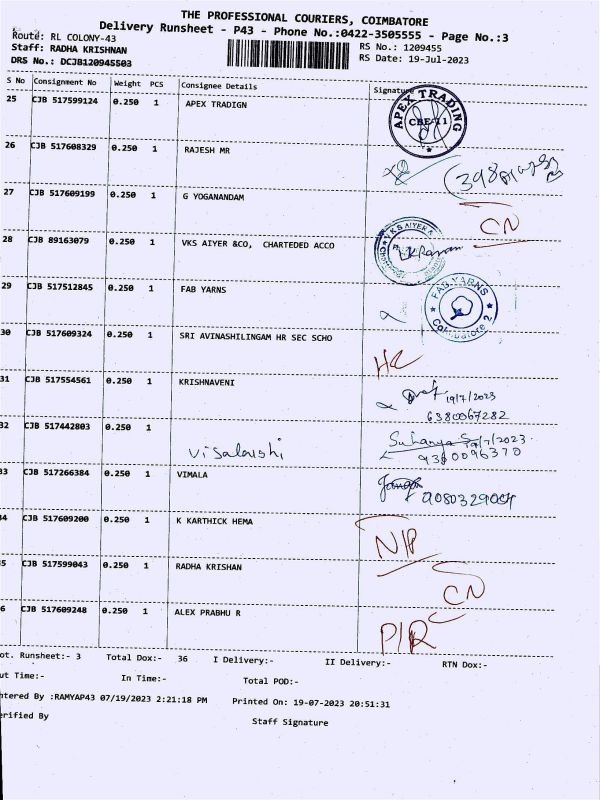 THE PROFESSIONAL COURIERS, COIMBATORE
Delivery Runsheet - P43 - Phone No.:0422-3505555 - Page No.:3
Route: RL COLONY-43
RS No.: 1209455
Staff: RADHA KRISHNAN
RS Date: 19-Jul-2023
DRS No.: DCJB120945503
S No Consignment No Weight PCS Consignee Details Signature
25 CJB 517599124 0.250 1 APEX TRADIGN
APEX TRADING
CBE-11
26 CJB 517608329 0.250 1 RAJESH MR
27 CJB 517609199 0.250 1 G YOGANANDAM CN
28 CJB 89163079 0.250 1 VKS AIYER &CO, CHARTEDED ACCO
VKS AIYER &
29 CJB 517512845 0.250 1 FAB YARNS
FAB YARNS
Coimbatore 2
30 CJB 517609324 0.250 1 SRI AVINASHILINGAM HR SEC SCHO
31 CJB 517554561 0.250 1 KRISHNAVENI 19/7/2023
6380067282
32 CJB 517442803 0.250 1
Visalaushi
Suhanya S 19/7/2023.
9380096370
33 CJB 517266384 0.250 1 VIMALA
34 CJB 517609200 0.250 1 K KARTHICK HEMA
N/P
5 CJB 517599043 0.250 1 RADHA KRISHAN
CN
6 CJB 517609248 0.250 1 ALEX PRABHU R
P/R
ot. Runsheet:- 3 Total Dox:- 36 I Delivery:- II Delivery:- RTN Dox:-
ut Time:- In Time:- Total POD:-
ntered By :RAMYAP43 07/19/2023 2:21:18 PM Printed On: 19-07-2023 20:51:31
erified By Staff Signature